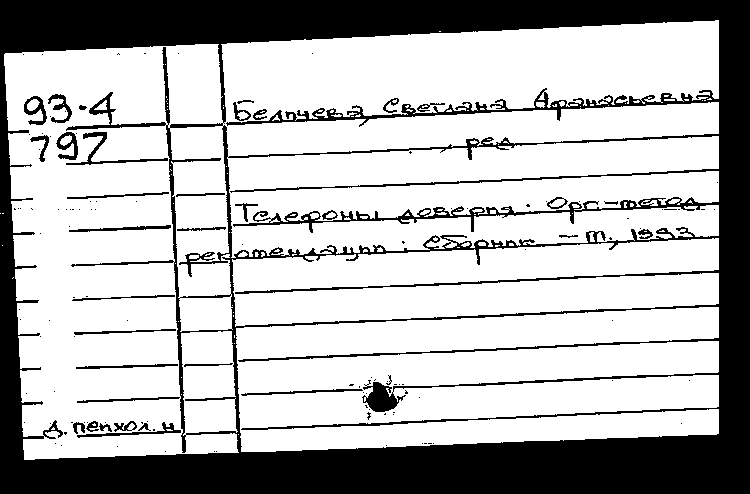 93-4
797
Беличева, Светлана Афанасьевна
, ред.
Телефоны доверия: Орг.-метод.
рекомендации: Сборник – М., 1993
д. психол. н.